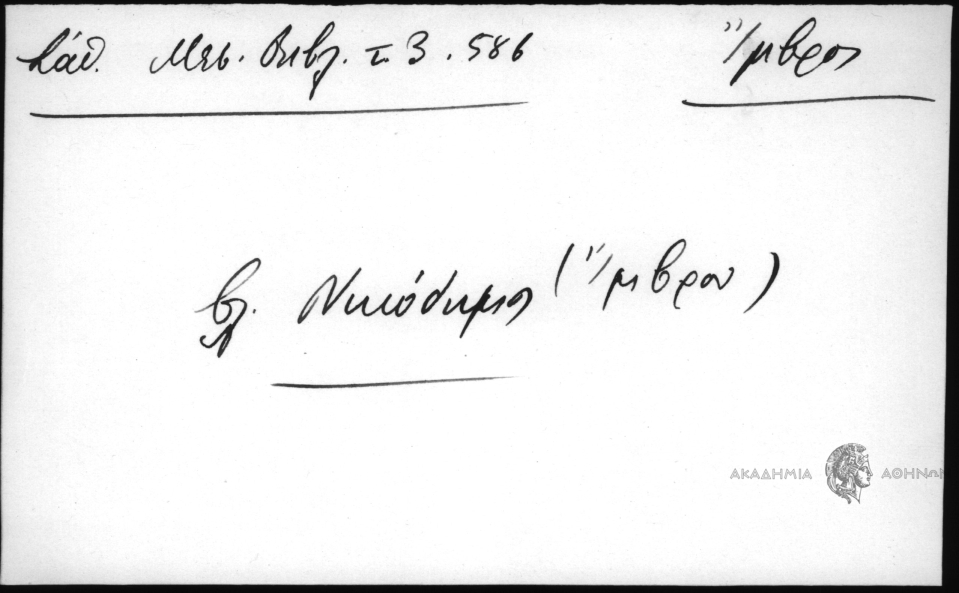 Σάθ. Μεσ. Βιβλ. τ. 3. 586 Ἴμβρος
βλ. Νικόδημος (Ἴμβρου)
ΑΚΑΔΗΜΙΑ ΑΘΗΝΩΝ